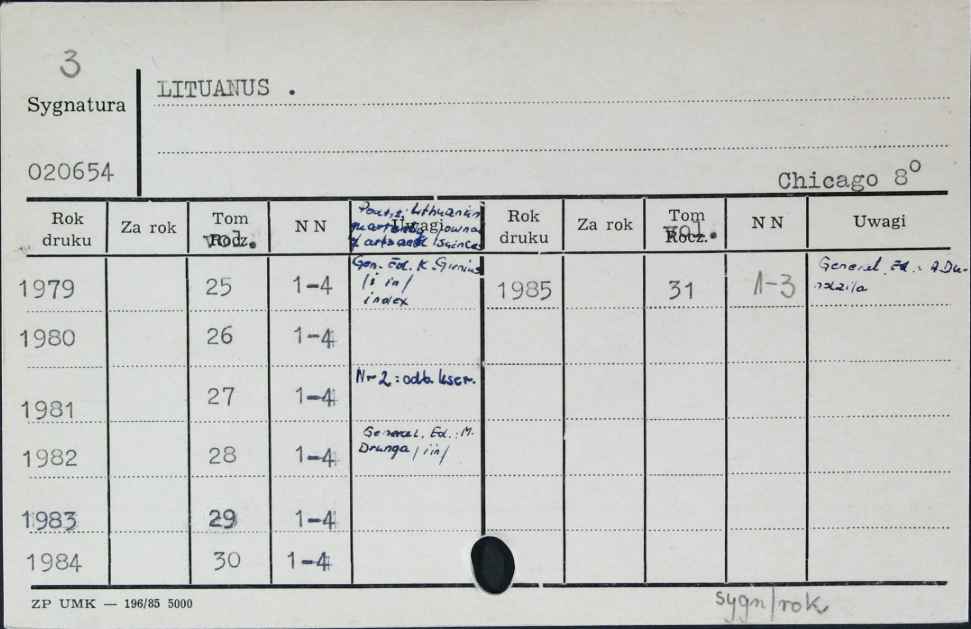 3
LITUANUS .
Sygnatura
020654
Chicago 8°
Rok druku Za rok Tom Rocz. vol. N N Uwagi Rok druku Za rok Tom Rocz. vol. N N Uwagi
Lithuanian
quarterly
arts and
1979 25 1-4 Gen. Ed. K. 1985 31 1-3 General. Ed.: A.
/i in/
index
1980 26 1-4
1981 27 1-4 Nr 2: odb. kser.
1982 28 1-4 General. Ed.: M.
Drunga /i in/
1983 29 1-4
1984 30 1-4
ZP UMK — 196/85 5000
sygn/rok